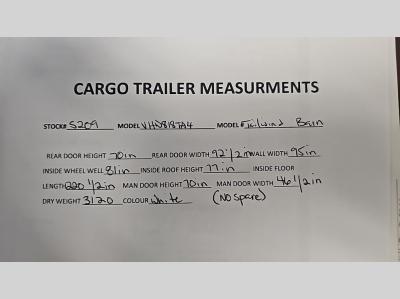 CARGO TRAILER MEASURMENTS
STOCK# S209 MODEL VHD818TA4 MODEL Tailwind
REAR DOOR HEIGHT 70in REAR DOOR WIDTH 92 1/2in WALL WIDTH 95in
INSIDE WHEEL WELL 81in INSIDE ROOF HEIGHT 77in INSIDE FLOOR
LENGTH 220 1/2in MAN DOOR HEIGHT 70in MAN DOOR WIDTH 46 1/2in
DRY WEIGHT 3120 COLOUR white (NO Spare)